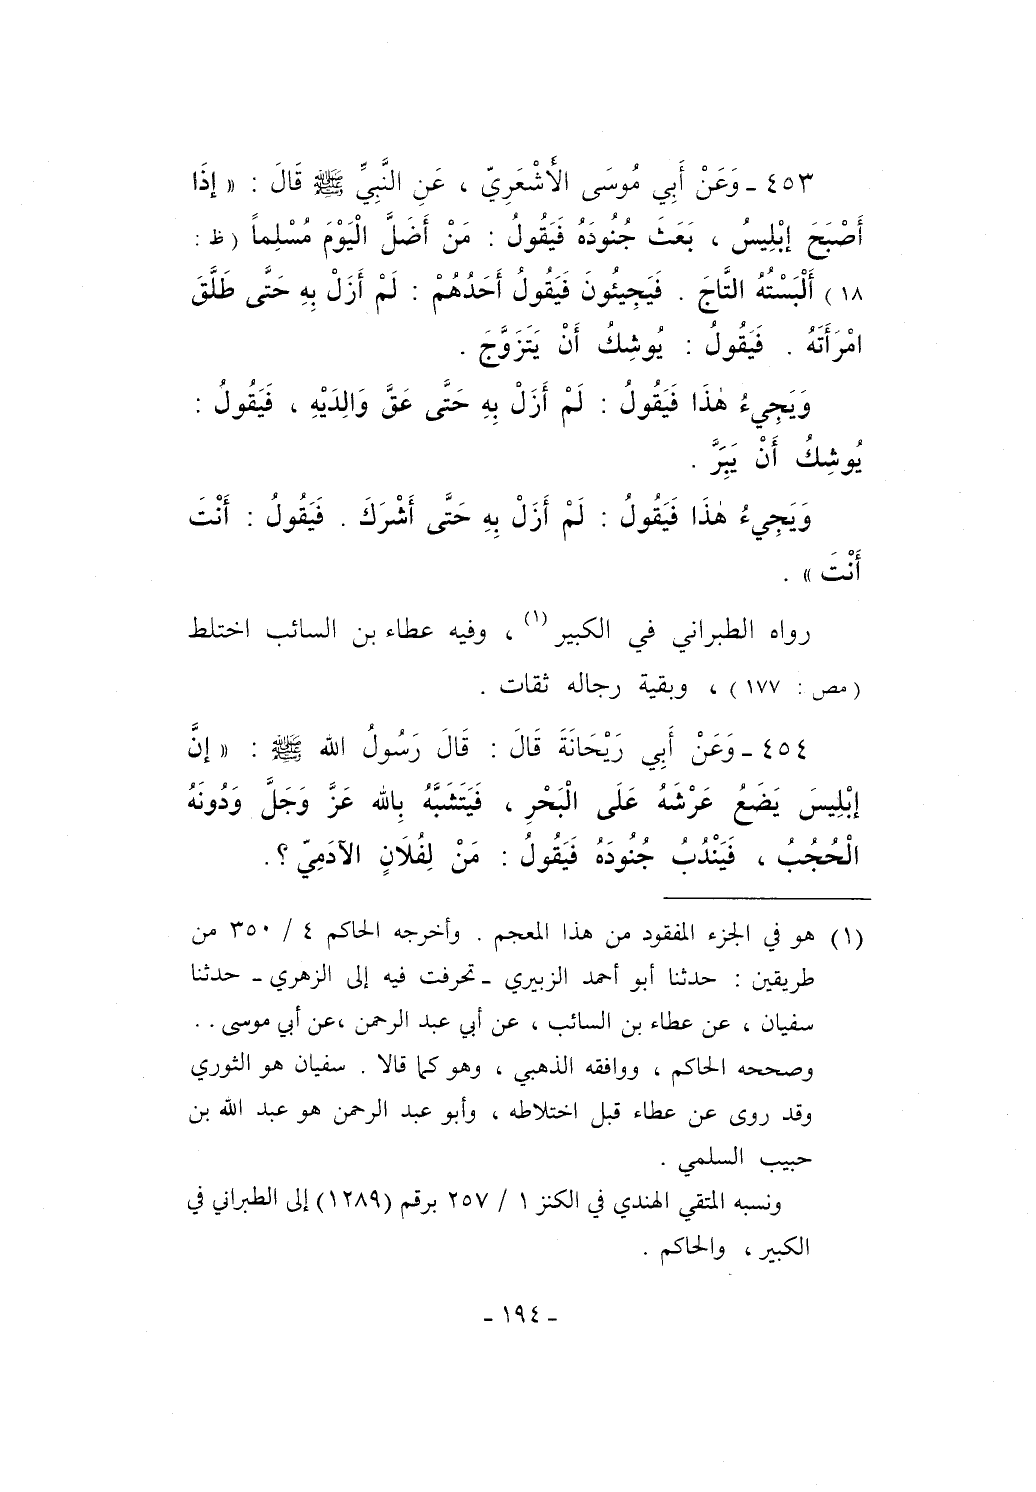 ٤٥٣ ـ وَعَنْ أَبِي مُوسَى الْأَشْعَرِيّ ، عَنِ النَّبِيِّ ﷺ قَالَ : « إِذَا
أَصْبَحَ إِبْلِيسُ ، بَعَثَ جُنُودَهُ فَيَقُولُ : مَنْ أَضَلَّ الْيَوْمَ مُسْلِماً ( ظ :
١٨ ) أَلْبَسْتُهُ التَّاجَ . فَيَجِيئُونَ فَيَقُولُ أَحَدُهُمْ : لَمْ أَزَلْ بِهِ حَتَّى طَلَّقَ
امْرَأَتَهُ . فَيَقُولُ : يُوشِكُ أَنْ يَتَزَوَّجَ .
وَيَجِيءُ هٰذَا فَيَقُولُ : لَمْ أَزَلْ بِهِ حَتَّى عَقَّ وَالِدَيْهِ ، فَيَقُولُ :
يُوشِكُ أَنْ يَبَرَّ .
وَيَجِيءُ هٰذَا فَيَقُولُ : لَمْ أَزَلْ بِهِ حَتَّى أَشْرَكَ . فَيَقُولُ : أَنْتَ
أَنْتَ » .
رواه الطبراني في الكبير (١) ، وفيه عطاء بن السائب اختلط
( مص : ١٧٧ ) ، وبقية رجاله ثقات .
٤٥٤ ـ وَعَنْ أَبِي رَيْحَانَةَ قَالَ : قَالَ رَسُولُ الله ﷺ : « إِنَّ
إِبْلِيسَ يَضَعُ عَرْشَهُ عَلَى الْبَحْرِ ، فَيَتَشَبَّهُ بِالله عَزَّ وَجَلَّ وَدُونَهُ
الْحُجُبُ ، فَيَنْدُبُ جُنُودَهُ فَيَقُولُ : مَنْ لِفُلَانٍ الآدَمِيّ ؟ .
(١) هو في الجزء المفقود من هذا المعجم . وأخرجه الحاكم ٤ / ٣٥٠ من
طريقين : حدثنا أبو أحمد الزبيري ـ تحرفت فيه إلى الزهري ـ حدثنا
سفيان ، عن عطاء بن السائب ، عن أبي عبد الرحمن ،عن أبي موسى . .
وصححه الحاكم ، ووافقه الذهبي ، وهو كما قالا . سفيان هو الثوري
وقد روى عن عطاء قبل اختلاطه ، وأبو عبد الرحمن هو عبد الله بن
حبيب السلمي .
ونسبه المتقي الهندي في الكنز ١ / ٢٥٧ برقم (١٢٨٩) إلى الطبراني في
الكبير ، والحاكم .
- ١٩٤ -